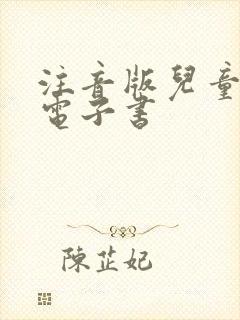 注音版兒童
電子書
陳芷妃